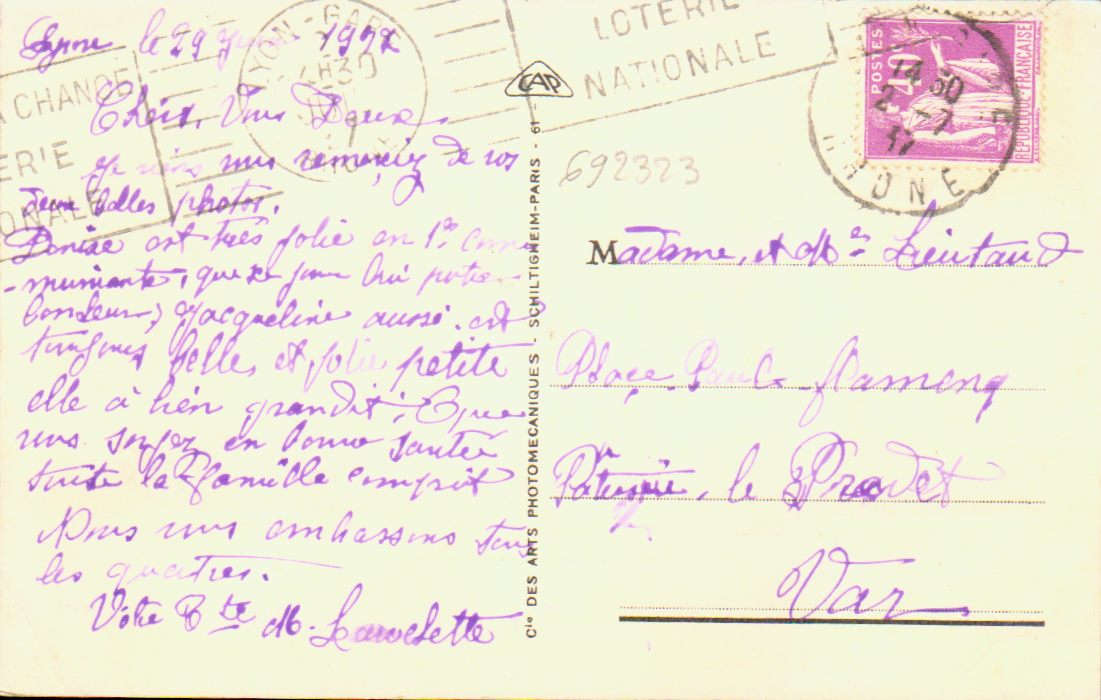 Lyon le 29 1937
Chers, Vous Deux.
Je viens vous remerciez de vos
deux belles photos.
Denise est très jolie en 1re com
-muniante, que ce jour lui porte
bonheur, Jacqueline aussi est
toujours belle et jolie petite
elle à bien grandit; Que
vous soyez en bonne santée
toute la Famille compris
Nous vous embassons tous
les quatres.
Votre Tte M.
LYON-GARE
4H30
LA CHANCE
LOTERIE
NATIONALE
LOTERIE
NATIONALE
CAP
Cie DES ARTS PHOTOMECANIQUES - SCHILTIGHEIM-PARIS - 61
692323
POSTES
40c
REPUBLIQUE-FRANCAISE
14 30
2-7
37
RHONE
Madame, et Mr Lieutaud
Place Paul Flamenq
Patisserie, le Pradet
Var